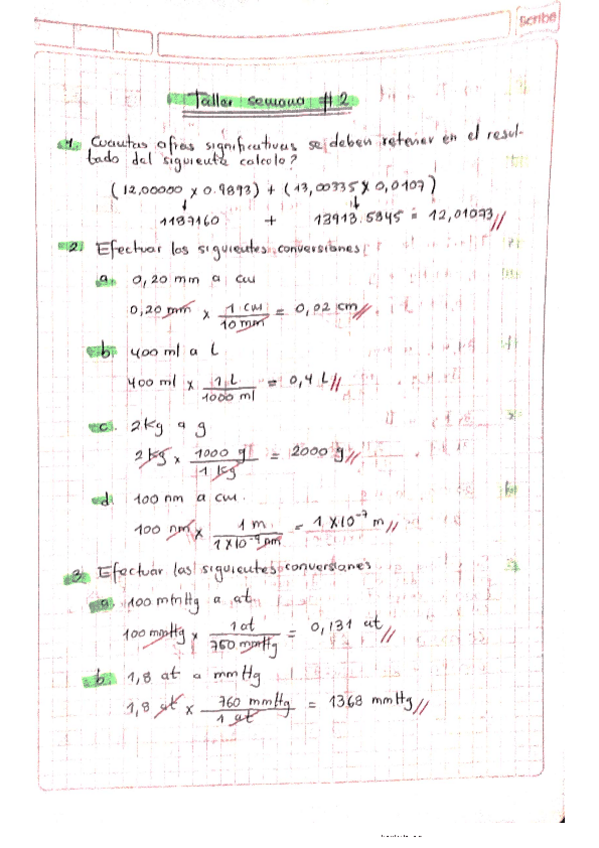 Scribe
Taller semana #2
1. Cuantas cifras significativas se deben retener en el resul-
tado del siguiente calculo?
(12,00000 x 0.9893) + (13,00335 x 0,0107)
↓ ↓
1187160 + 13913.5845 = 12,01073//
2. Efectuar los siguientes conversiones
a. 0,20 mm a cm
0,20 mm x 1 cm / 10 mm = 0,02 cm//
b. 400 ml a L
400 ml x 1 L / 1000 ml = 0,4 L//
c. 2kg a g
2 kg x 1000 g / 1 kg = 2000 g//
d. 100 nm a cm.
100 nm x 1 m / 1x10⁻⁹ nm = 1 x10⁻⁷ m//
3. Efectuar las siguientes conversiones
a. 100 mmHg a at
100 mmHg x 1 at / 760 mmHg = 0,131 at//
b. 1,8 at a mmHg
1,8 at x 760 mmHg / 1 at = 1368 mmHg//